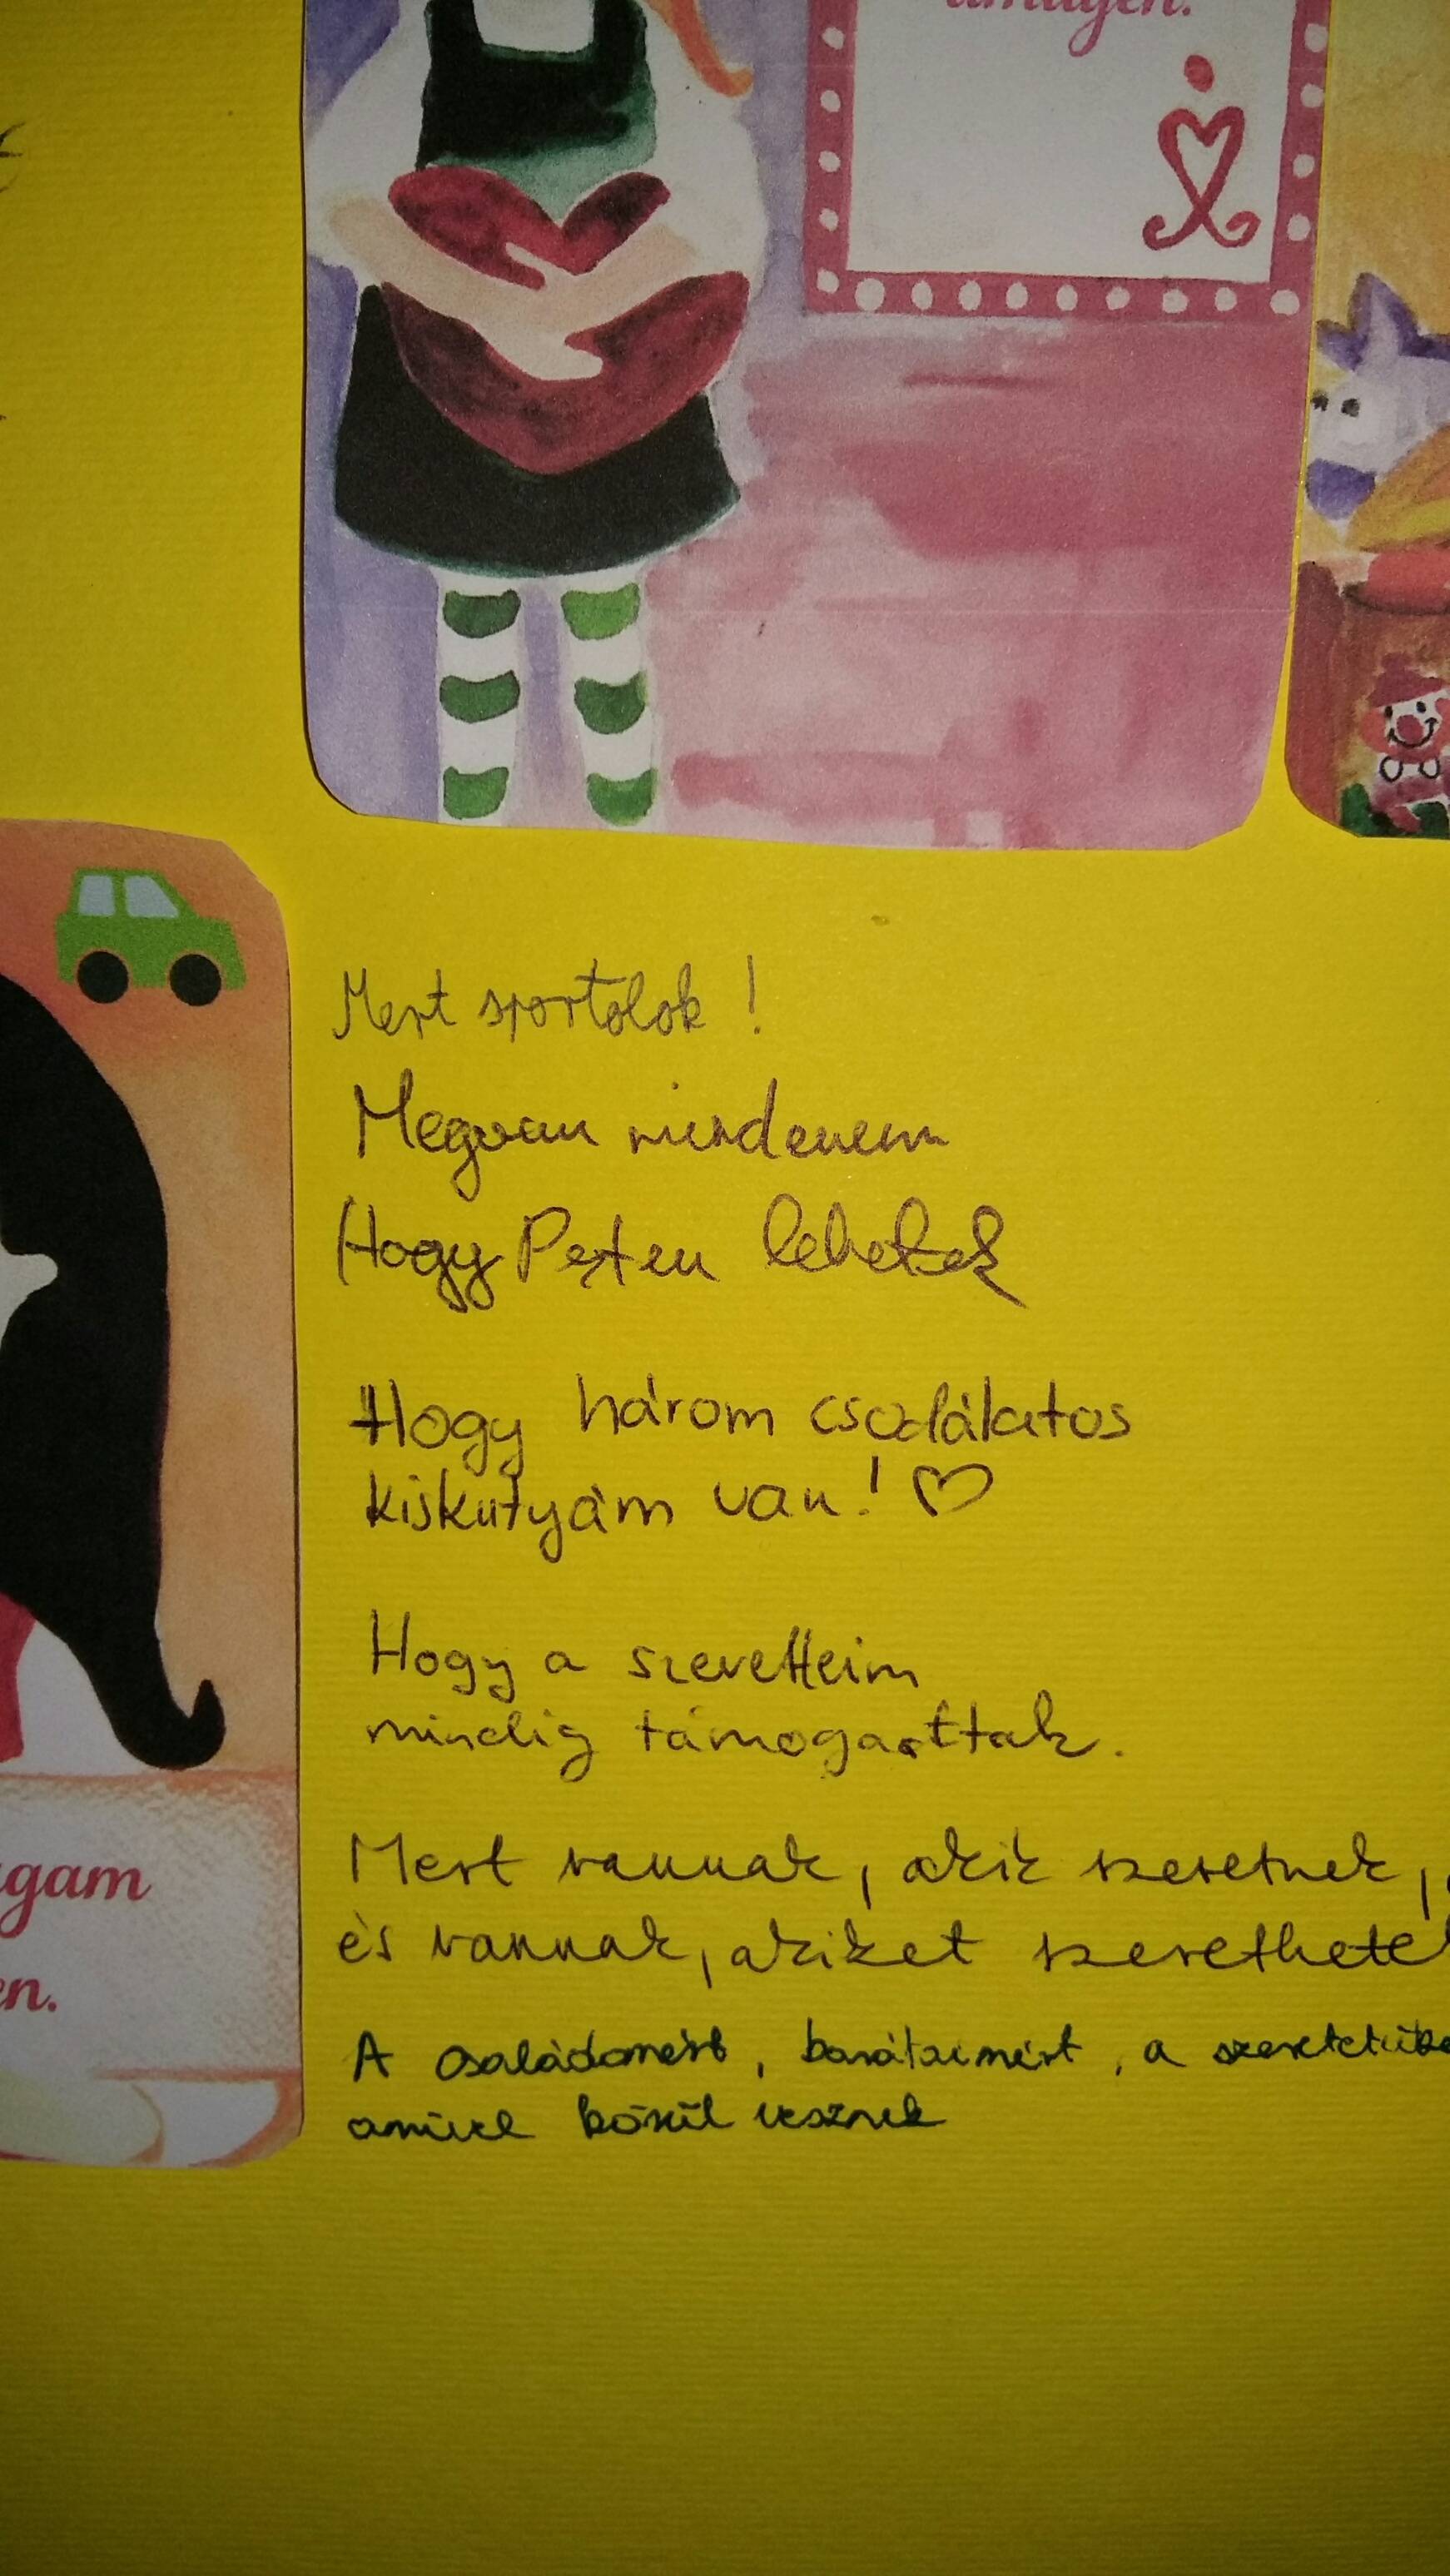 Mert sportolok!
Megvan mindenem
Hogy Pesten lehetek
Hogy három csodálatos
kiskutyám van! ♡
Hogy a szeretteim
mindig támogattak.
gam
en.
Mert vannak, akik szeretnek,
és vannak, akiket szerethete
A családomért, barátaimért, a
amivel körül vesznek